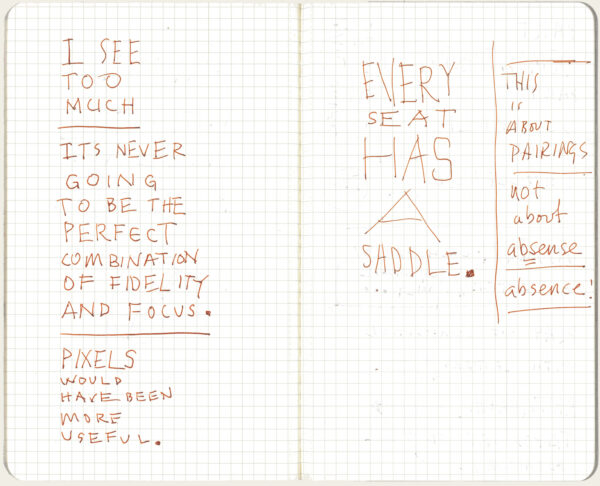 I SEE
TOO
MUCH
ITS NEVER
GOING
TO BE THE
PERFECT
COMBINATION
OF FIDELITY
AND FOCUS.
PIXELS
WOULD
HAVE BEEN
MORE
USEFUL.
EVERY
SEAT
HAS
A
SADDLE.
THIS
IS
ABOUT
PAIRINGS
not
about
absense
absence!